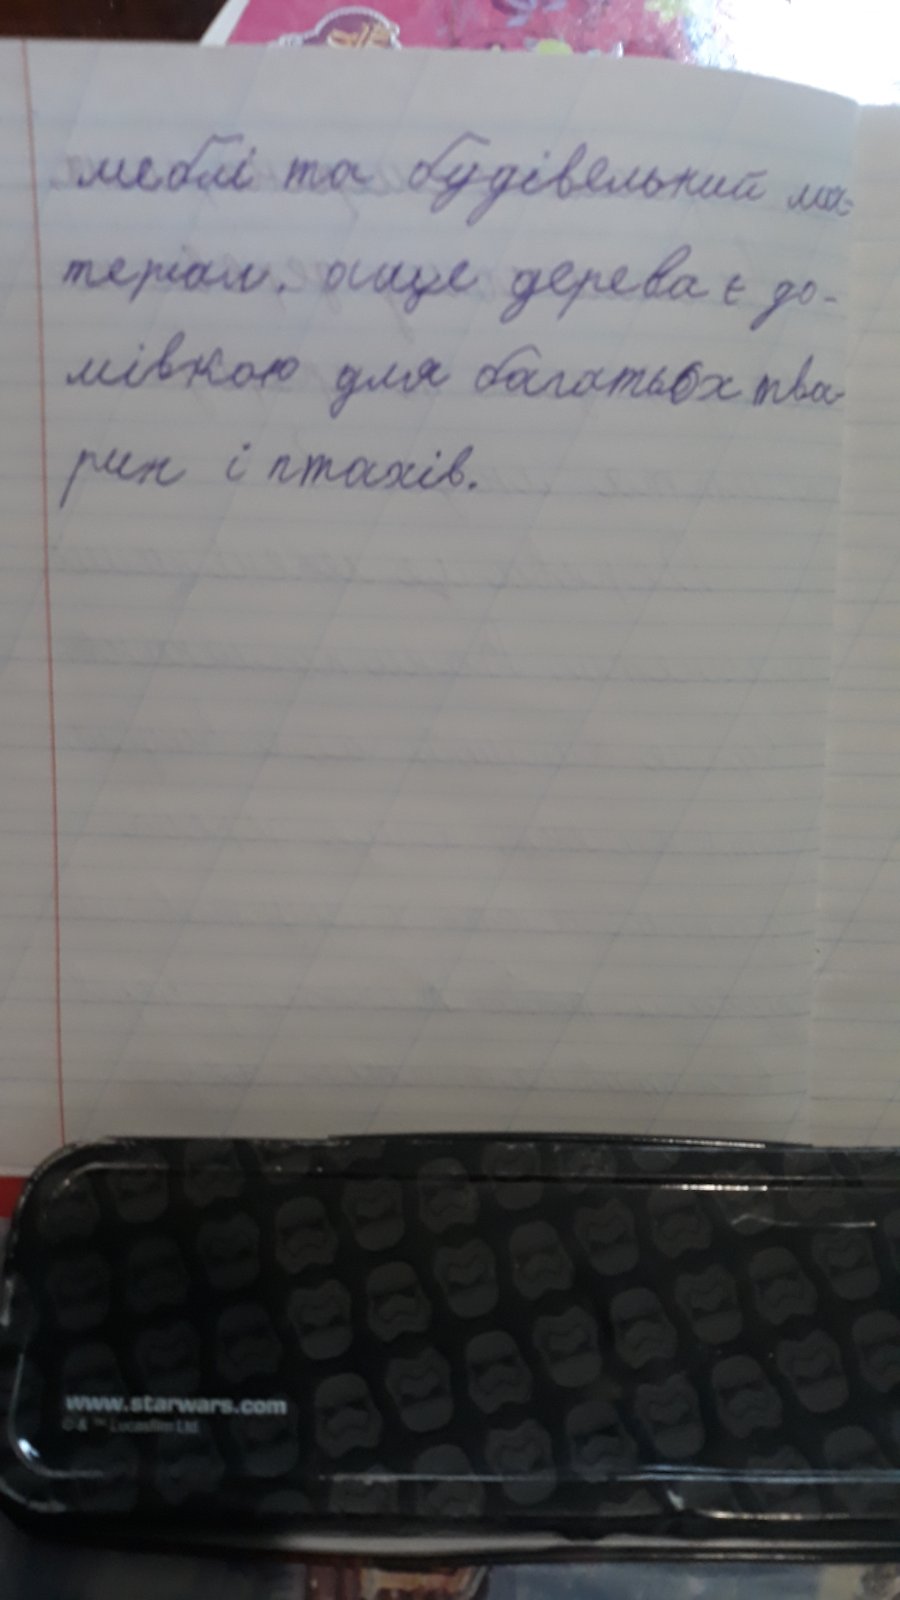 меблі та будівельний ма-
теріал. А ще дерева є до-
мівкою для багатьох тва-
рин і птахів.
www.starwars.com
© & ™ Lucasfilm Ltd.